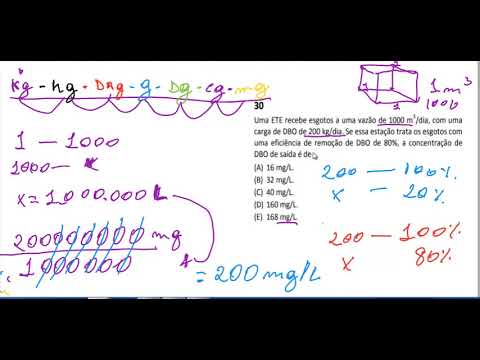 Kg - hg - Dag - g - Dg - cg - mg
1 m³
1000
30
Uma ETE recebe esgotos a uma vazão de 1000 m³/dia, com uma
carga de DBO de 200 kg/dia. Se essa estação trata os esgotos com
uma eficiência de remoção de DBO de 80%, a concentração de
DBO de saída é de
(A) 16 mg/L.
(B) 32 mg/L.
(C) 40 mg/L.
(D) 160 mg/L.
(E) 168 mg/L.
1 — 1000
1000 — x
x = 1.000.000 L
200000000 mg
1000000
= 200 mg/L
200 — 100%
x — 20%
200 — 100%
x 80%